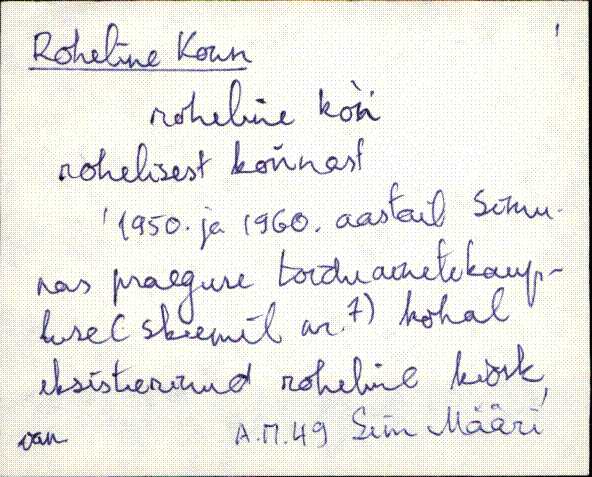 Roheline Konn
roheline kòǹ
rohelisest koǹnast
'1950. ja 1960. aastail Simu-
nas praeguse toiduainetekaup-
luse (skeemil nr. 7) kohal
eksisteerinud roheline kiosk,
van A.M.49 Sim Määri